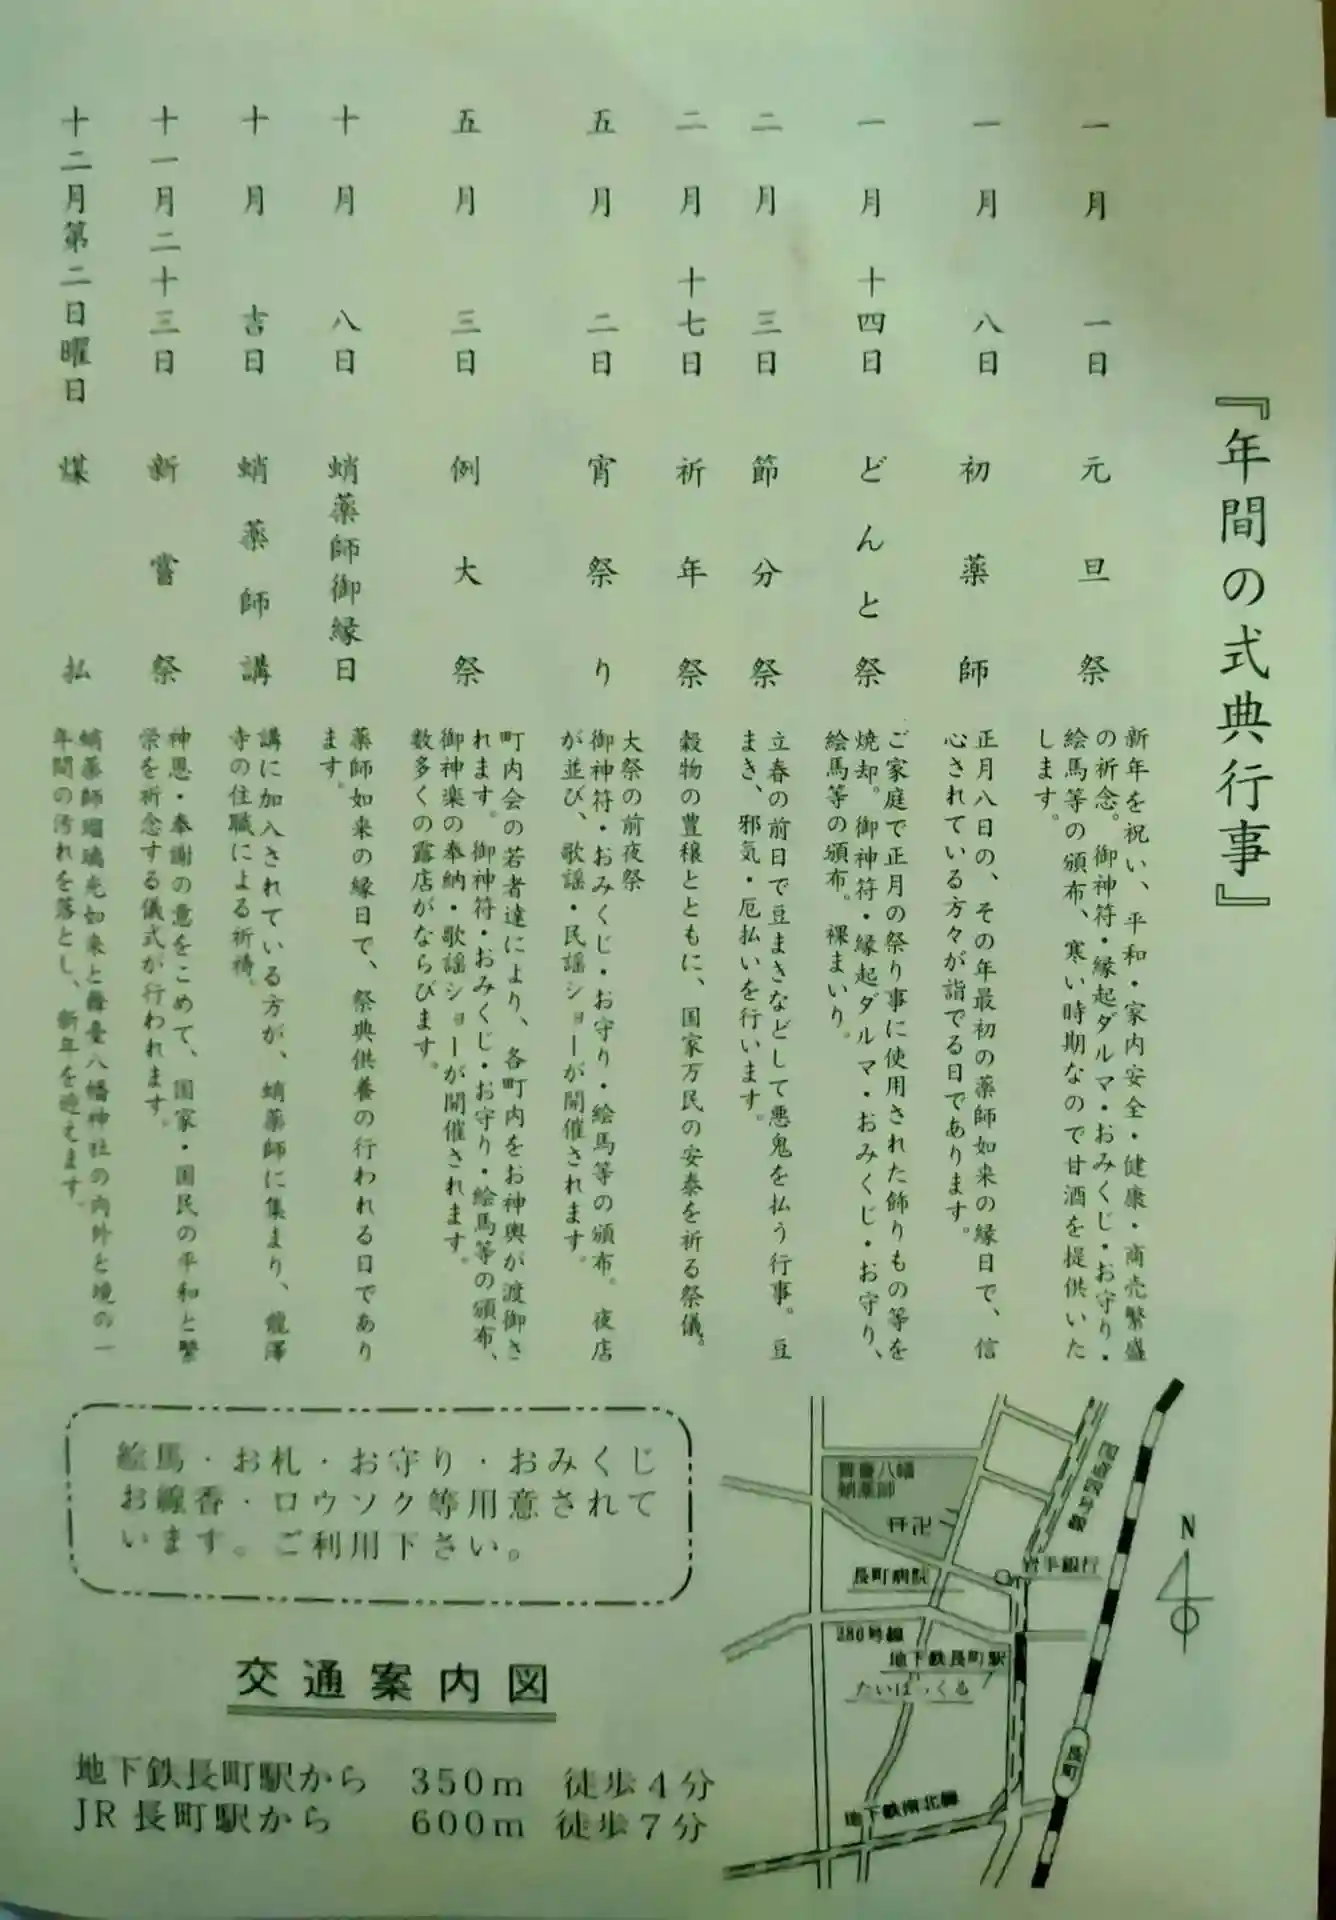 『年間の式典行事』
一月　一日　元旦祭
新年を祝い、平和・家内安全・健康・商売繁盛
の祈念。御神符・縁起ダルマ・おみくじ・お守り・
絵馬等の頒布、寒い時期なので甘酒を提供いた
します。
一月　八日　初薬師
正月八日の、その年最初の薬師如来の縁日で、信
心されている方々が詣でる日であります。
一月　十四日　どんと祭
ご家庭で正月の祭り事に使用された飾りもの等を
焼却。御神符・縁起ダルマ・おみくじ・お守り、
絵馬等の頒布。裸まいり。
二月　三日　節分祭
立春の前日で豆まきなどして悪鬼を払う行事。豆
まき、邪気・厄払いを行います。
二月　十七日　祈年祭
穀物の豊穣とともに、国家万民の安泰を祈る祭儀。
五月　二日　宵祭り
大祭の前夜祭
御神符・おみくじ・お守り・絵馬等の頒布。夜店
が並び、歌謡・民謡ショーが開催されます。
五月　三日　例大祭
町内会の若者達により、各町内をお神輿が渡御さ
れます。御神符・おみくじ・お守り・絵馬等の頒布、
御神楽の奉納・歌謡ショーが開催されます。
数多くの露店がならびます。
十月　八日　蛸薬師御縁日
薬師如来の縁日で、祭典供養の行われる日であり
ます。
十月　吉日　蛸薬師講
講に加入されている方が、蛸薬師に集まり、龍澤
寺の住職による祈祷。
十一月二十三日　新嘗祭
神恩・奉謝の意をこめて、国家・国民の平和と繁
栄を祈念する儀式が行われます。
十二月第二日曜日　煤払
蛸薬師瑠璃光如来と舞臺八幡神社の内外と境の一
年間の汚れを落とし、新年を迎えます。
絵馬・お札・お守り・おみくじ
お線香・ロウソク等用意されて
います。ご利用下さい。
交通案内図
地下鉄長町駅から　350m　徒歩4分
JR長町駅から　600m　徒歩7分
舞臺八幡
蛸薬師
長町病院
岩手銀行
286号線
地下鉄長町駅
たいはっくる
地下鉄南北線
長町
N